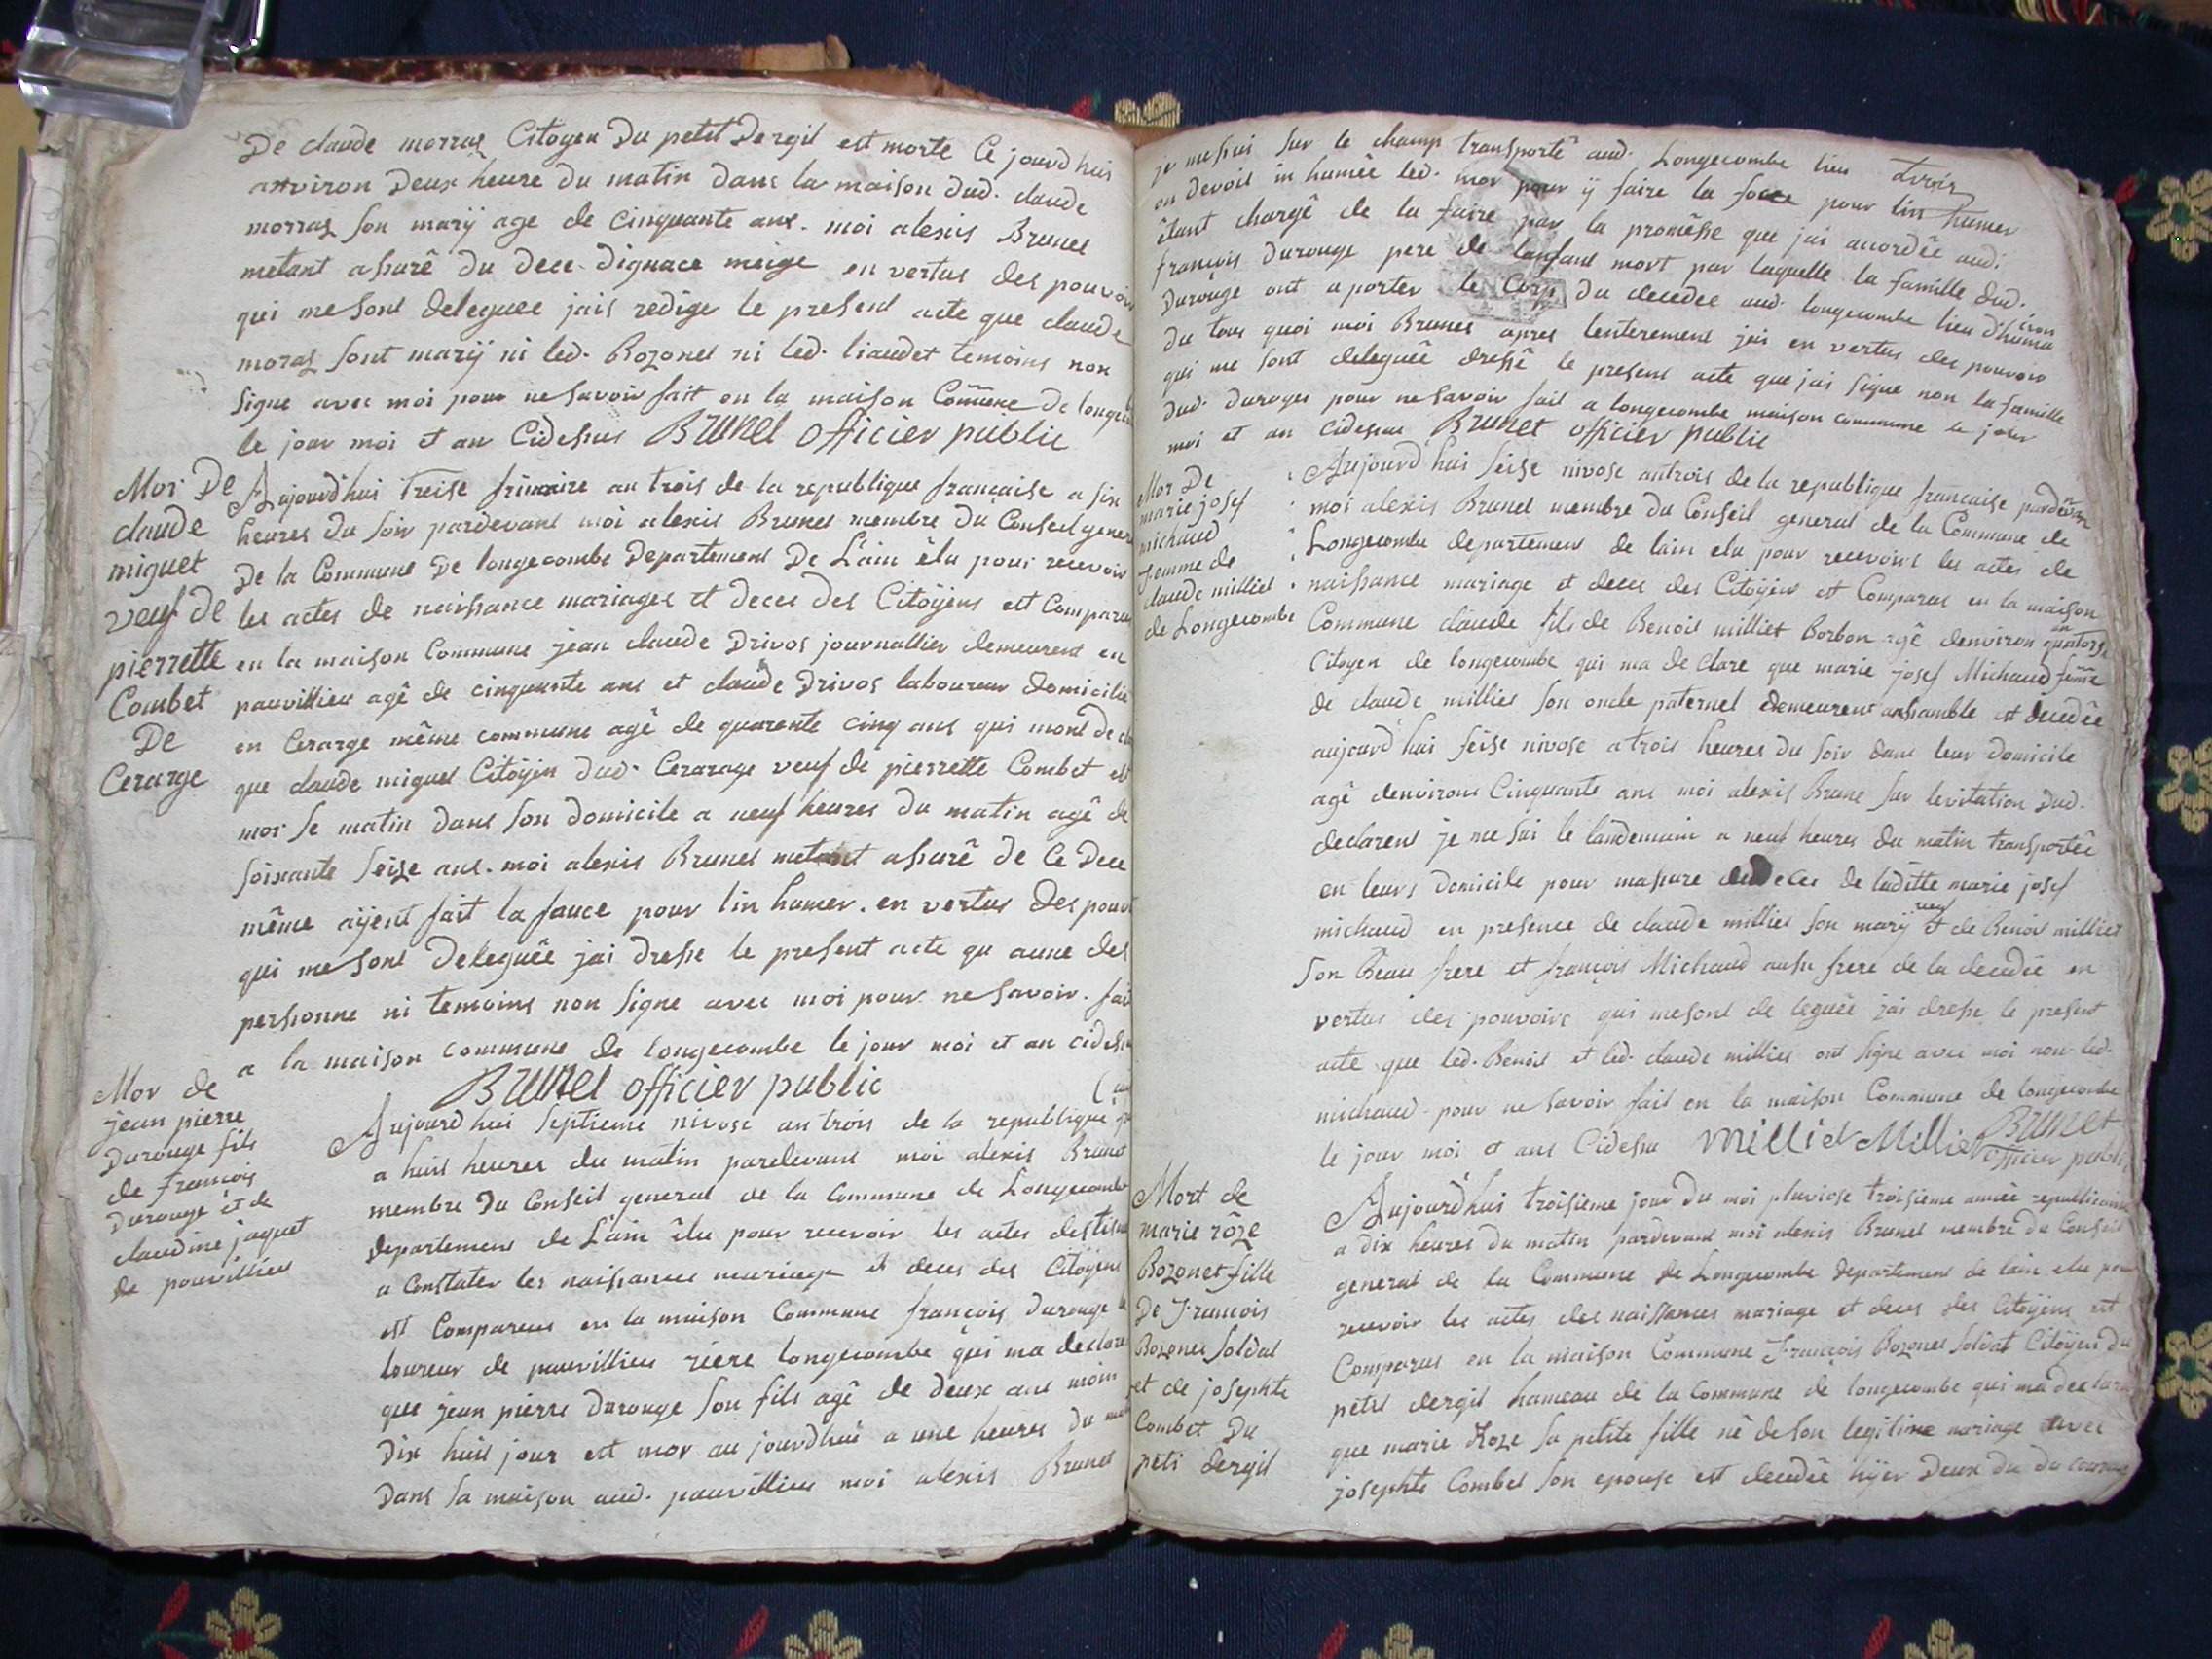 De claude morraz Citoyen Du petit Dergil est morte Ce jourd'huis
anviron Deux heure du matin dans la maison dud. claude
morraz son marÿ age de cinquante ans. moi alexis Brunet
metant assurê du dece dignace meige en vertus des pouvoirs
qui me sont deleguee jais redige le present acte que claude
moraz sont marÿ ni led. Bozonet ni led. liaudet temoins non
signe avec moi pour ne savoir fait en la maison Commune de longec
le jour moi et an Cidessus Brunet officier public
Mor De
claude
miguet
veuf de
pierrette
Combet
De
Cerarge
Aujourd'hui treise frimaire an trois de la republique francaise a six
heures du soir pardevant moi alexis Brunet membre du Conseil gener
De la Commune De longecombe Departement De L'ain êlu pour recevoir
les actes de naissance mariages et deces des Citoÿens est Comparu
en la maison Commune jean claude Drivos journallier demeurent en
pauvillieu agê de cinquante ans et claude Drivos laboureur domicilie
en Cerarge même commune agê de quarente cinq ans qui mont de cla
que claude miguet Citoÿen dud. Cerarage veuf de pierrette Combet est
mor se matin dans son domicile a neuf heures du matin agê de
soixante seize ans. moi alexis Brunet metant assurê de ce dece
même aÿent fait la fauce pour lin humer. en vertus des pouv
qui me sont deleguêe jai dresse le present acte qu aune des
personne ni temoins non signe avec moi pour ne savoir. fai
a la maison commune de longecombe le jour moi et an cidess
Brunet officier public
Mor de
jean pierre
Durouge fils
de francois
Durouge et de
claudine jaquet
de pouvillieu
Aujourd hui septieme nivose an trois de la republique
a huit heures du matin pardevant moi alexis Brunet
membre du Conseil general de la commune de Longecombe
departement de L'ain êlu pour recevoir les actes destiné
a Constater les naissances mariage et deces des Citoyens
est Comparus en la maison Commune françois durouge la
boureur de pauvillieu riere longecombe qui ma declare
que jean pierre Durouge son fils agê de deux ans moin
dix huit jour est mor au jourd'huî a une heures du mat
Dans sa maison aud. pauvillieu moi alexis Brunet
je me suis sur le champ transportê aud. Longecombe lieu
on devoit in humêe led. mor pour ÿ faire la foce pour lin humer
êtant chargê de la faire par la promêsse que jai accordêe aud.
françois Durouge pere de lanfant mort par laquelle la famille dud.
Durouge ont aporter le Corp du decedee aud. longecombe lieu d'huma
tion
Du tous quoi moi Brunet apres lenterement jai en vertus des pouvoir
qui me sont deleguêe dressê le present acte que jai signe non la famille
dud. duroges pour ne savoir fait a longecombe maison commune le jour
moi et an cidessus Brunet officier public
Mor De
marie josef
michaud
femme de
claude milliet
de Longecombe
Aujourd'hui seise nivose antrois de la republique francaise pardevan
moi alexis Brunet membre du Conseil general de la Commune de
Longecombe departement de lain elu pour recevoirs les actes de
naissance mariage et deces des Citoÿens est Comparus en la maison
Commune claude fils de Benoit milliet Borbon agê denviron quatorse
an
Citoyen de longecombe qui ma de clare que marie josef Michaud femme
de claude milliet son oncle paternel demeurent anssamble est decedêe
aujourd'hui seise nivose a trois heures du soir dans leur domicile
agê denvirons Cinquante ans moi alexis Brune sur levitation dud.
declarent je me sui le landemain a neuf heures du matin transportêe
en leurs domicile pour massure du deces de ladîtte marie josef
michaud en presence de claude milliet son marÿ et de Benoit milliet
son Beau frere et françois Michaud aussi frere de la decedée en
vertus des pouvoirs qui mesont de leguêe jai dresse le present
acte que led. Benoit et led. claude milliet ont signe avec moi non led.
michaud pour ne savoir fait en la maison Commune de longecombe
le jour moi et ans Cidessu Milliet Milliet Brunet
officier public
Mort de
marie rôze
Bozonet fille
De Francois
Bozonet soldat
et de josephte
Combet Du
peti dergil
Aujourd'hui troisieme jour du moi pluviose troisieme année republicaine
a dix heures du matin pardevant moi alexis Brunet membre du Conseil
general de la Commune de Longecombe departement de lain elu pour
recevoir les actes des naissances mariage et deces des Citoÿens est
Comparus en la maison Commune François Bozonet soldat Citoÿen du
petit dergil hameau de la Commune de longecombe qui ma declara
que marie Roze sa petite fille nê de son legitime mariage avec
josephte Combet son epouse est decedêe hÿer deux du du courant